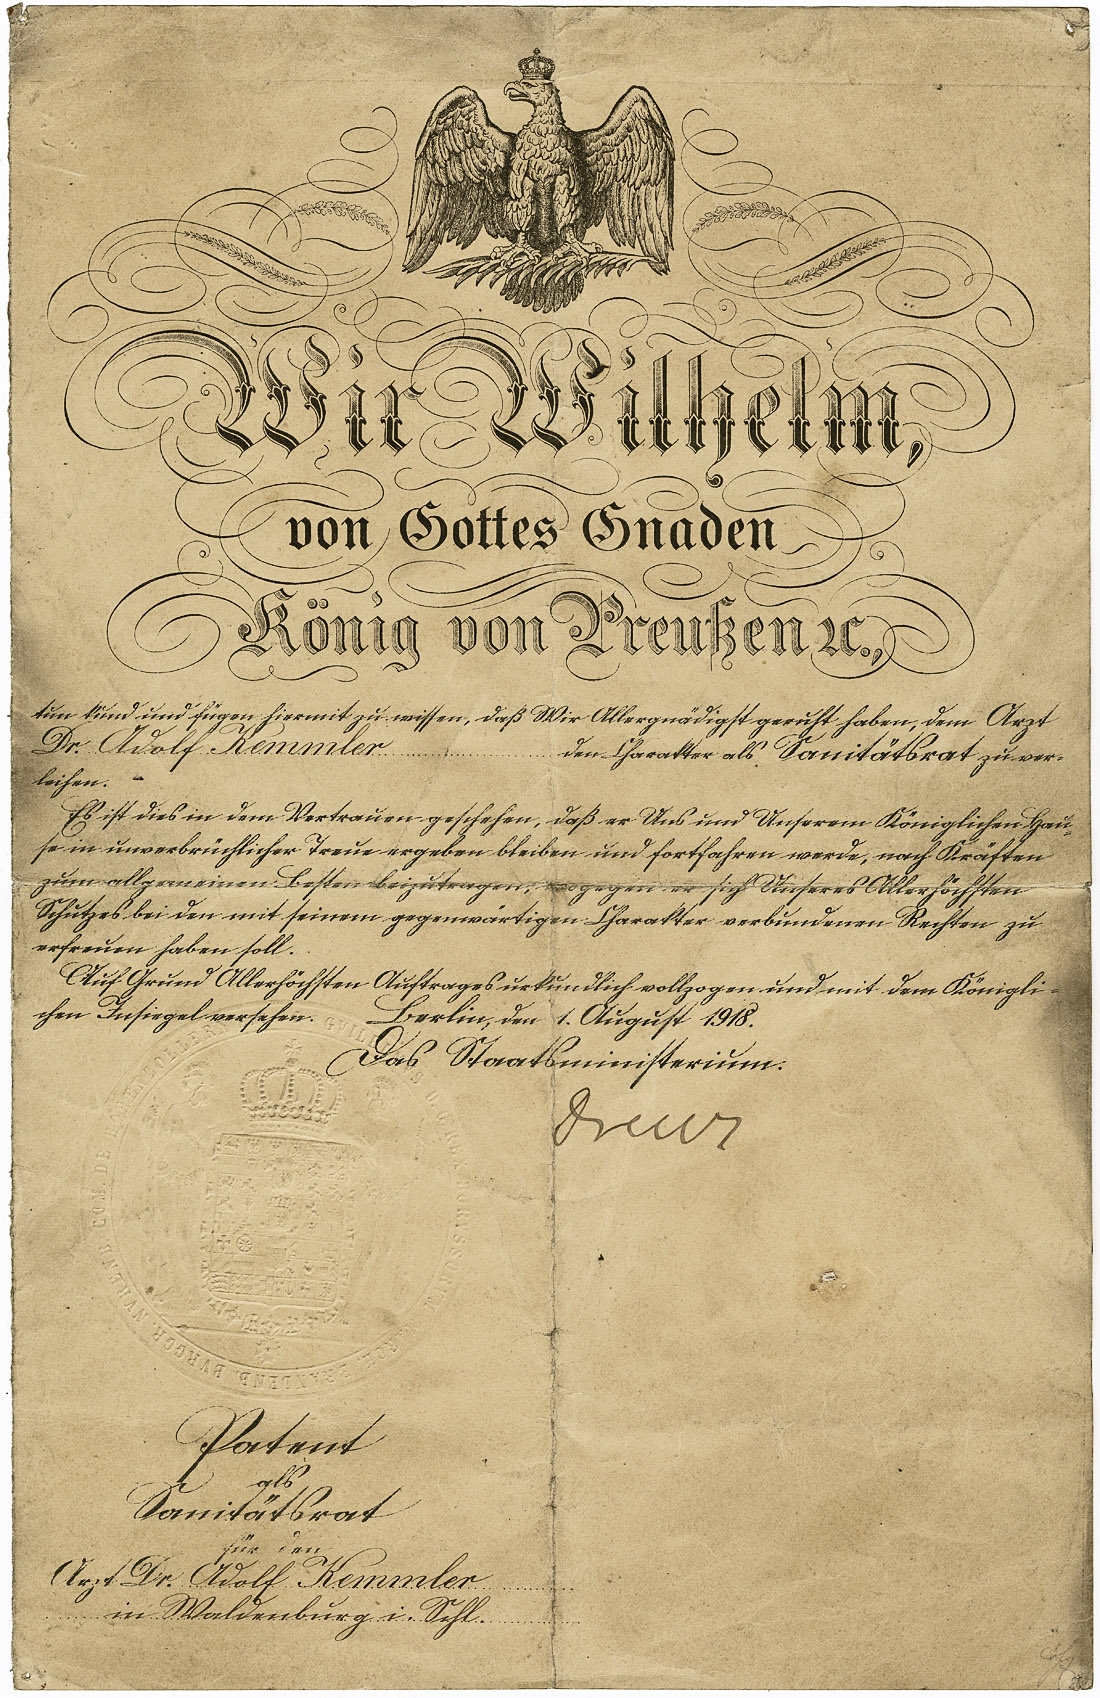 Wir Wilhelm,
von Gottes Gnaden
König von Preußen ꝛc.,
tun kund und fügen hiermit zu wissen, daß Wir Allergnädigst geruht haben, dem Arzt
Dr. Adolf Kemmler den Charakter als Sanitätsrat zu ver-
leihen.
Es ist dies in dem Vertrauen geschehen, daß er Uns und Unserem Königlichen Hau-
se in unverbrüchlicher Treue ergeben bleiben und fortfahren werde, nach Kräften
zum allgemeinen Besten beizutragen, wogegen er sich Unseres Allerhöchsten
Schutzes bei den mit seinem gegenwärtigen Charakter verbundenen Rechten zu
erfreuen haben soll.
Auf Grund Allerhöchsten Auftrages urkundlich vollzogen und mit dem Königli-
chen Insiegel versehen. Berlin, den 1. August 1918.
Das Staatsministerium.
Drews
Patent
als
Sanitätsrat
für den
Arzt Dr. Adolf Kemmler
in Waldenburg i. Schl.